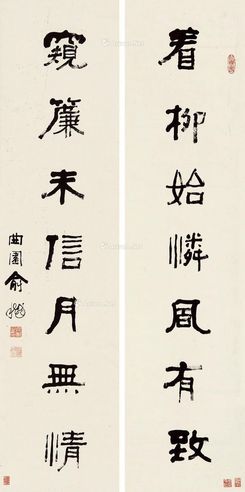 看柳始憐風有致
窺簾未信月無情
曲園俞樾